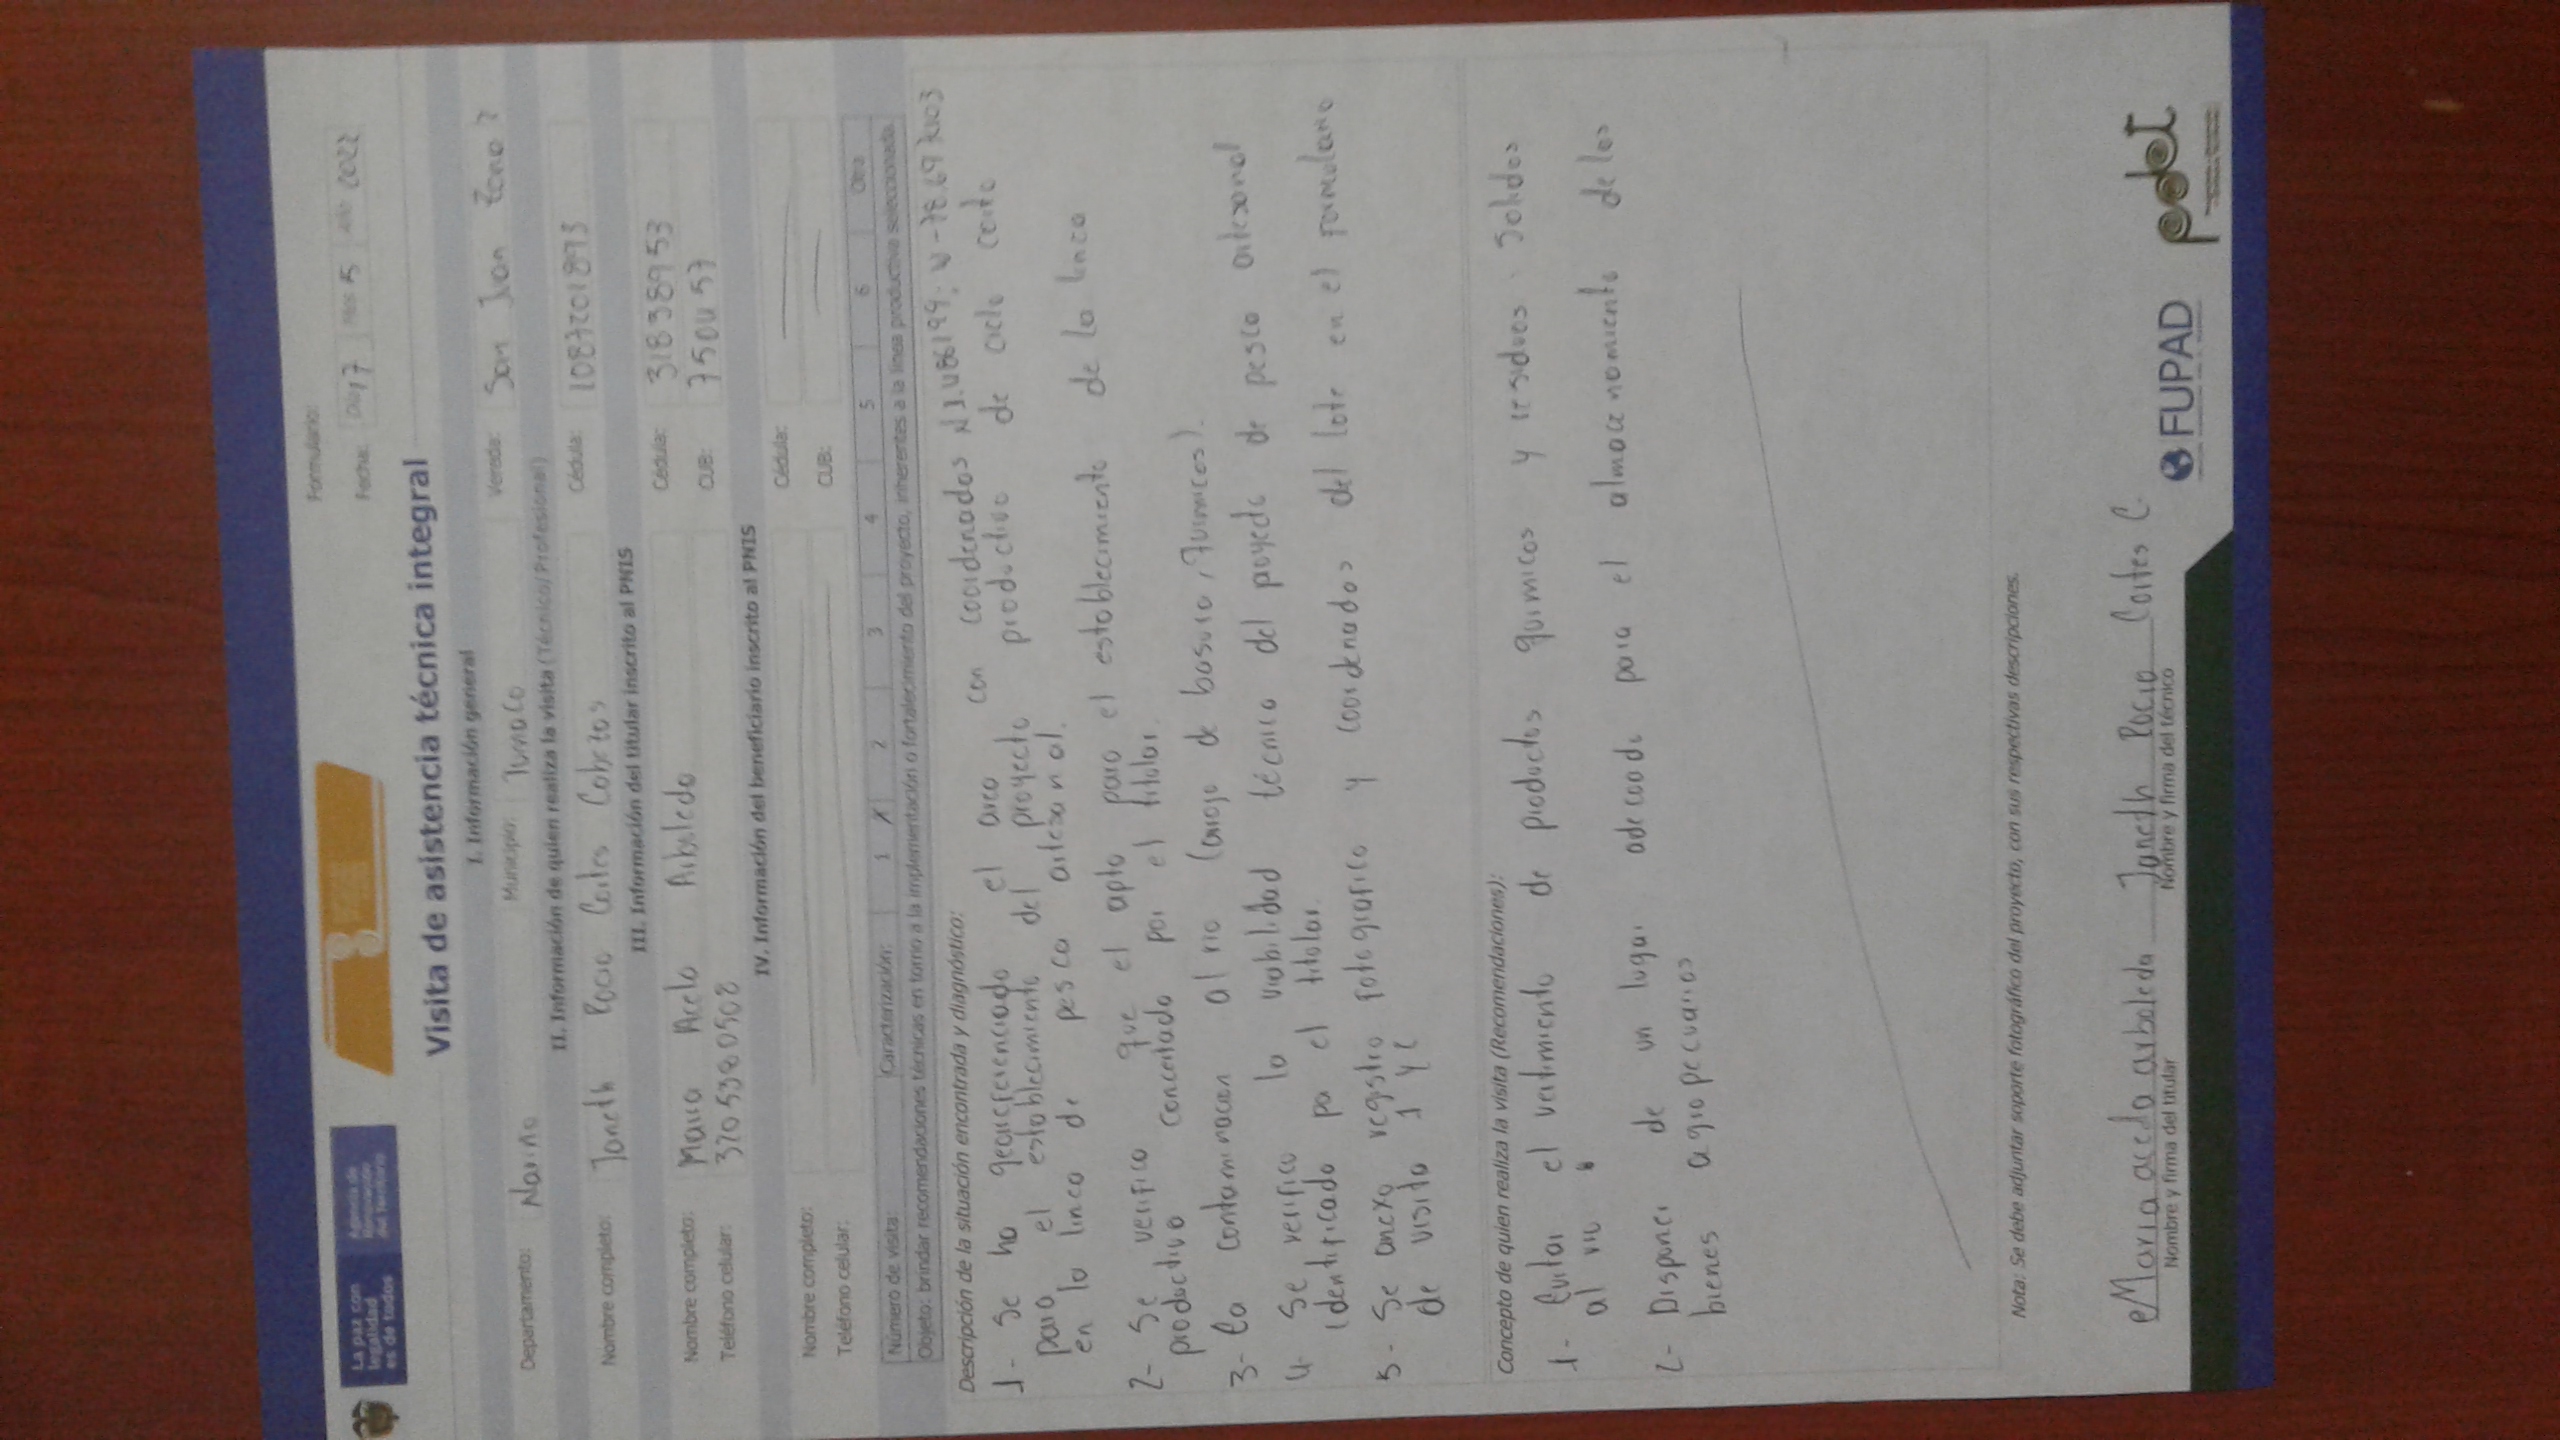 La paz con
legalidad
es de todos
Agencia de
Renovación
del Territorio
Formulario:
Fecha: Día 17 Mes 5 Año 2022
Visita de asistencia técnica integral
I. Información general
Departamento: Nariño Municipio: Tumaco Vereda: San Juan Zona 2
II. Información de quien realiza la visita (Técnico/Profesional)
Nombre completo: Janeth Rocio Cortes Cabezas Cédula: 1087201893
III. Información del titular inscrito al PNIS
Nombre completo: Maria Aceda Arboleda Cédula: 31838953
Teléfono celular: 3205380508 CUB: 750457
IV. Información del beneficiario inscrito al PNIS
Nombre completo: Cédula:
Teléfono celular: CUB:
Número de visita: Caracterización: 1 X 2 3 4 5 6 Otra
Objeto: brindar recomendaciones técnicas en torno a la implementación o fortalecimiento del proyecto, inherentes a la línea productiva seleccionada.
Descripción de la situación encontrada y diagnóstico:
1- Se ha georeferenciado el area con coordenadas N 1.486199; W -78.697003
para el establecimiento del proyecto productivo de ciclo corto
en la linea de pesca artesanal.
2- Se verifico que el apto para el establecimiento de la linea
productiva concertada por el titular.
3- La contaminacion al rio (arojo de basura, quimicos).
4- Se verifico la viabilidad técnica del proyecto de pesca artesanal
identificado po el titular.
5- Se anexa registro fotografico y coordenadas del lote en el formulario
de visita 1 y 2
Concepto de quien realiza la visita (Recomendaciones):
1- Evitar el vertimiento de productos quimicos y residuos solidos
al rio
2- Disponer de un lugar adecoado para el almacenamiento de los
bienes agropecuarios
Nota: Se debe adjuntar soporte fotográfico del proyecto, con sus respectivas descripciones.
Maria aceda arboleda Janeth Rocio Cortes C.
Nombre y firma del titular Nombre y firma del técnico
FUPAD
pdet